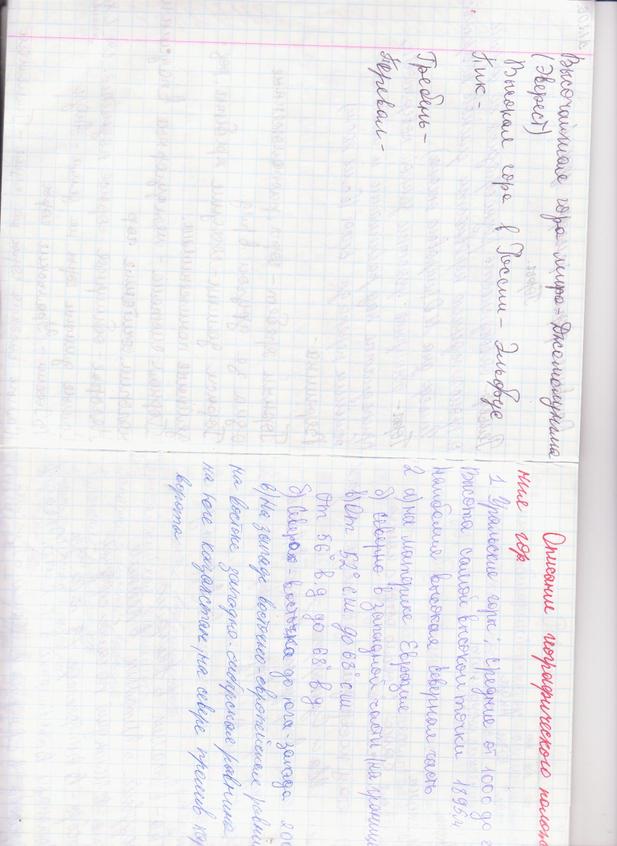 Высочайшая гора мира - Джомолунгма
(Эверест)
Высокая гора в России - Эльбрус
Пик -
Гребень -
Перевал -
Описание географического полож
ния гор
1 Уральские горы; средние от 1000 до
Высота самой высокой точки 1895 м
Наиболее высокая северная часть
2 а) на материке Евразия
б) северно в западной части (на границ
в) От 52° с ш до 68° с ш
От 56° в д до 68° в д
б) Северо востока до юга-запада 200
в) На западе восточно-европейская равни
на востоке западно-сибирская равнина
на юге казахстан, на севере пролив кар
ворота